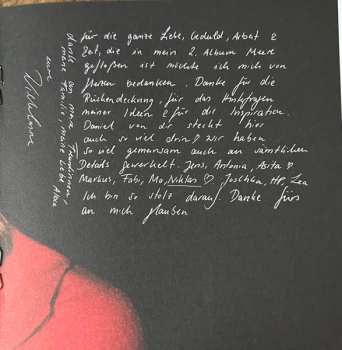 für die ganze Liebe, Geduld, Arbeit &
Zeit, die in mein 2. Album Meere
geflossen ist möchte ich mich von
Herzen bedanken. Danke für die
Rückendeckung, für das Hinterfragen
meiner Ideen & für die Inspiration.
Daniel von dir steckt hier
auch so viel drin & wir haben
so viel gemeinsam auch an sämtlichen
Details gewerkelt. Jens, Antonia, Asita ♡
Markus, Fabi, Mo, Niklas ♡, Joschka, HP, Lea
Ich bin so stolz darauf. Danke fürs
an mich glauben
danke an meine Freundinnen,
meine Familie, meine liebe
eure